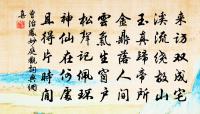 来访双成宅
溪流绕故山
玉真归帝所
金鼎落人间
云气生窗户
松声记佩环
神仙在何处
且得片时闲
曾治凤妙庭观和典纲
真